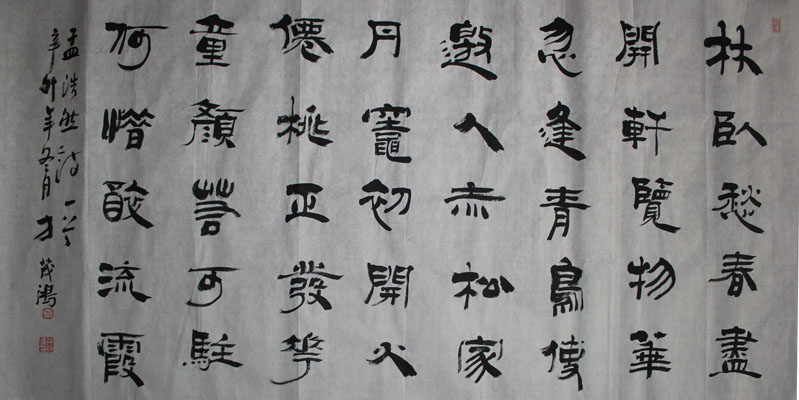 林臥愁春盡
開軒覽物華
忽逢青鳥使
邀入赤松家
丹竈初開火
僊桃正發花
童顏若可駐
何惜醉流霞
孟浩然詩一首
辛卯年冬月方茂鴻